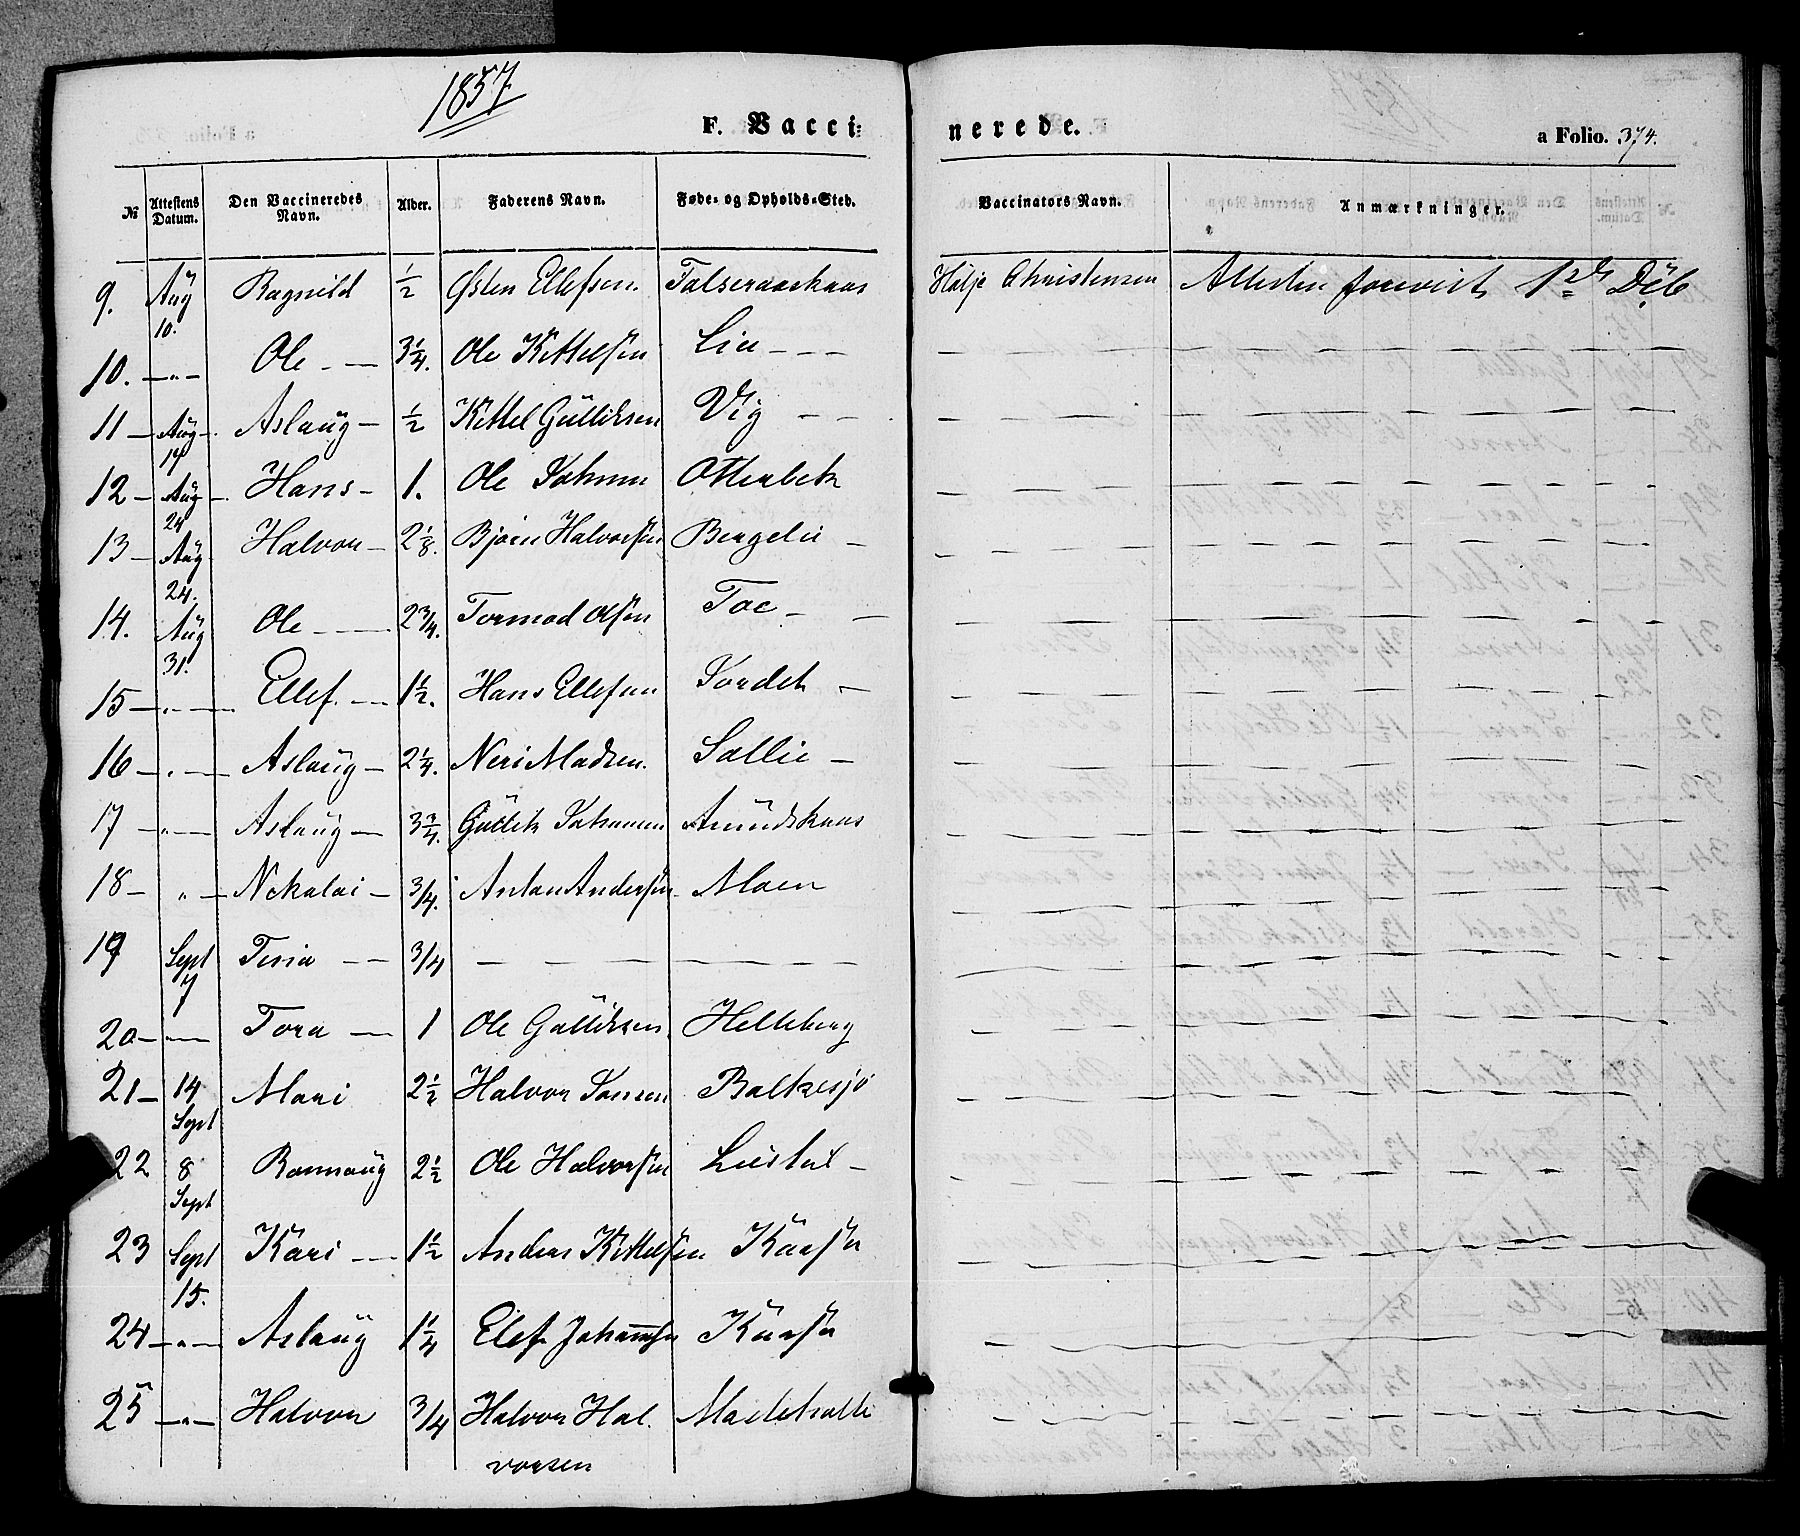 1857
F. Vacci=
nerede.
a Folio. 374.
№ Attestens Datum. Den Vaccineredes Navn. Alder. Faderens Navn. Føde- og Opholds-Sted. Vaccinators Navn. Anmærkninger.
9. Aug 10. Ragnild 1/2 Østen Ellefsen. Christensen Attesten 1ste
10. —„— Ole — 3 1/4. Ole Kittelsen Lie – – –
11 — Aug 17 Aslaug — 1/2 Kittel Gulliksen Vig – –
12 — Aug 24 Hans – 1. Ole Otterbek
13 — Aug 24. Halvor — 2 1/8. Bjørn Halvorsen Bergelie –
14. Aug 31. Ole — 2 3/4. Tormod Olsen –
15 —„— Ellef. — 1 1/2. Hans Ellefsen –
16 —„— Aslaug — 2 1/4. Neri Madsen. Sollie –
17 —„— Aslaug — 3 3/4. Gullik Johannsen Amundskaas
18 — „ — Nekolai — 3/4. Anton Andersen Moen
19 Sept 7 — — 3/4 — — — — — —
20 —„— Tora — 1 Ole Gulliksen Helleberg
21 — 14 Sept Mari 2 1/2 Halvor Bolkesjø
22 8 Sept Rannaug 2 1/2 Ole Halvorsen –
23 Sept 15. Kari — 1 1/2 Anders Kittelsen
24 —„— Aslaug 1 1/4 Elef Johannsen
25 —„— Halvor 3/4 Halvor Hal.
vorsen